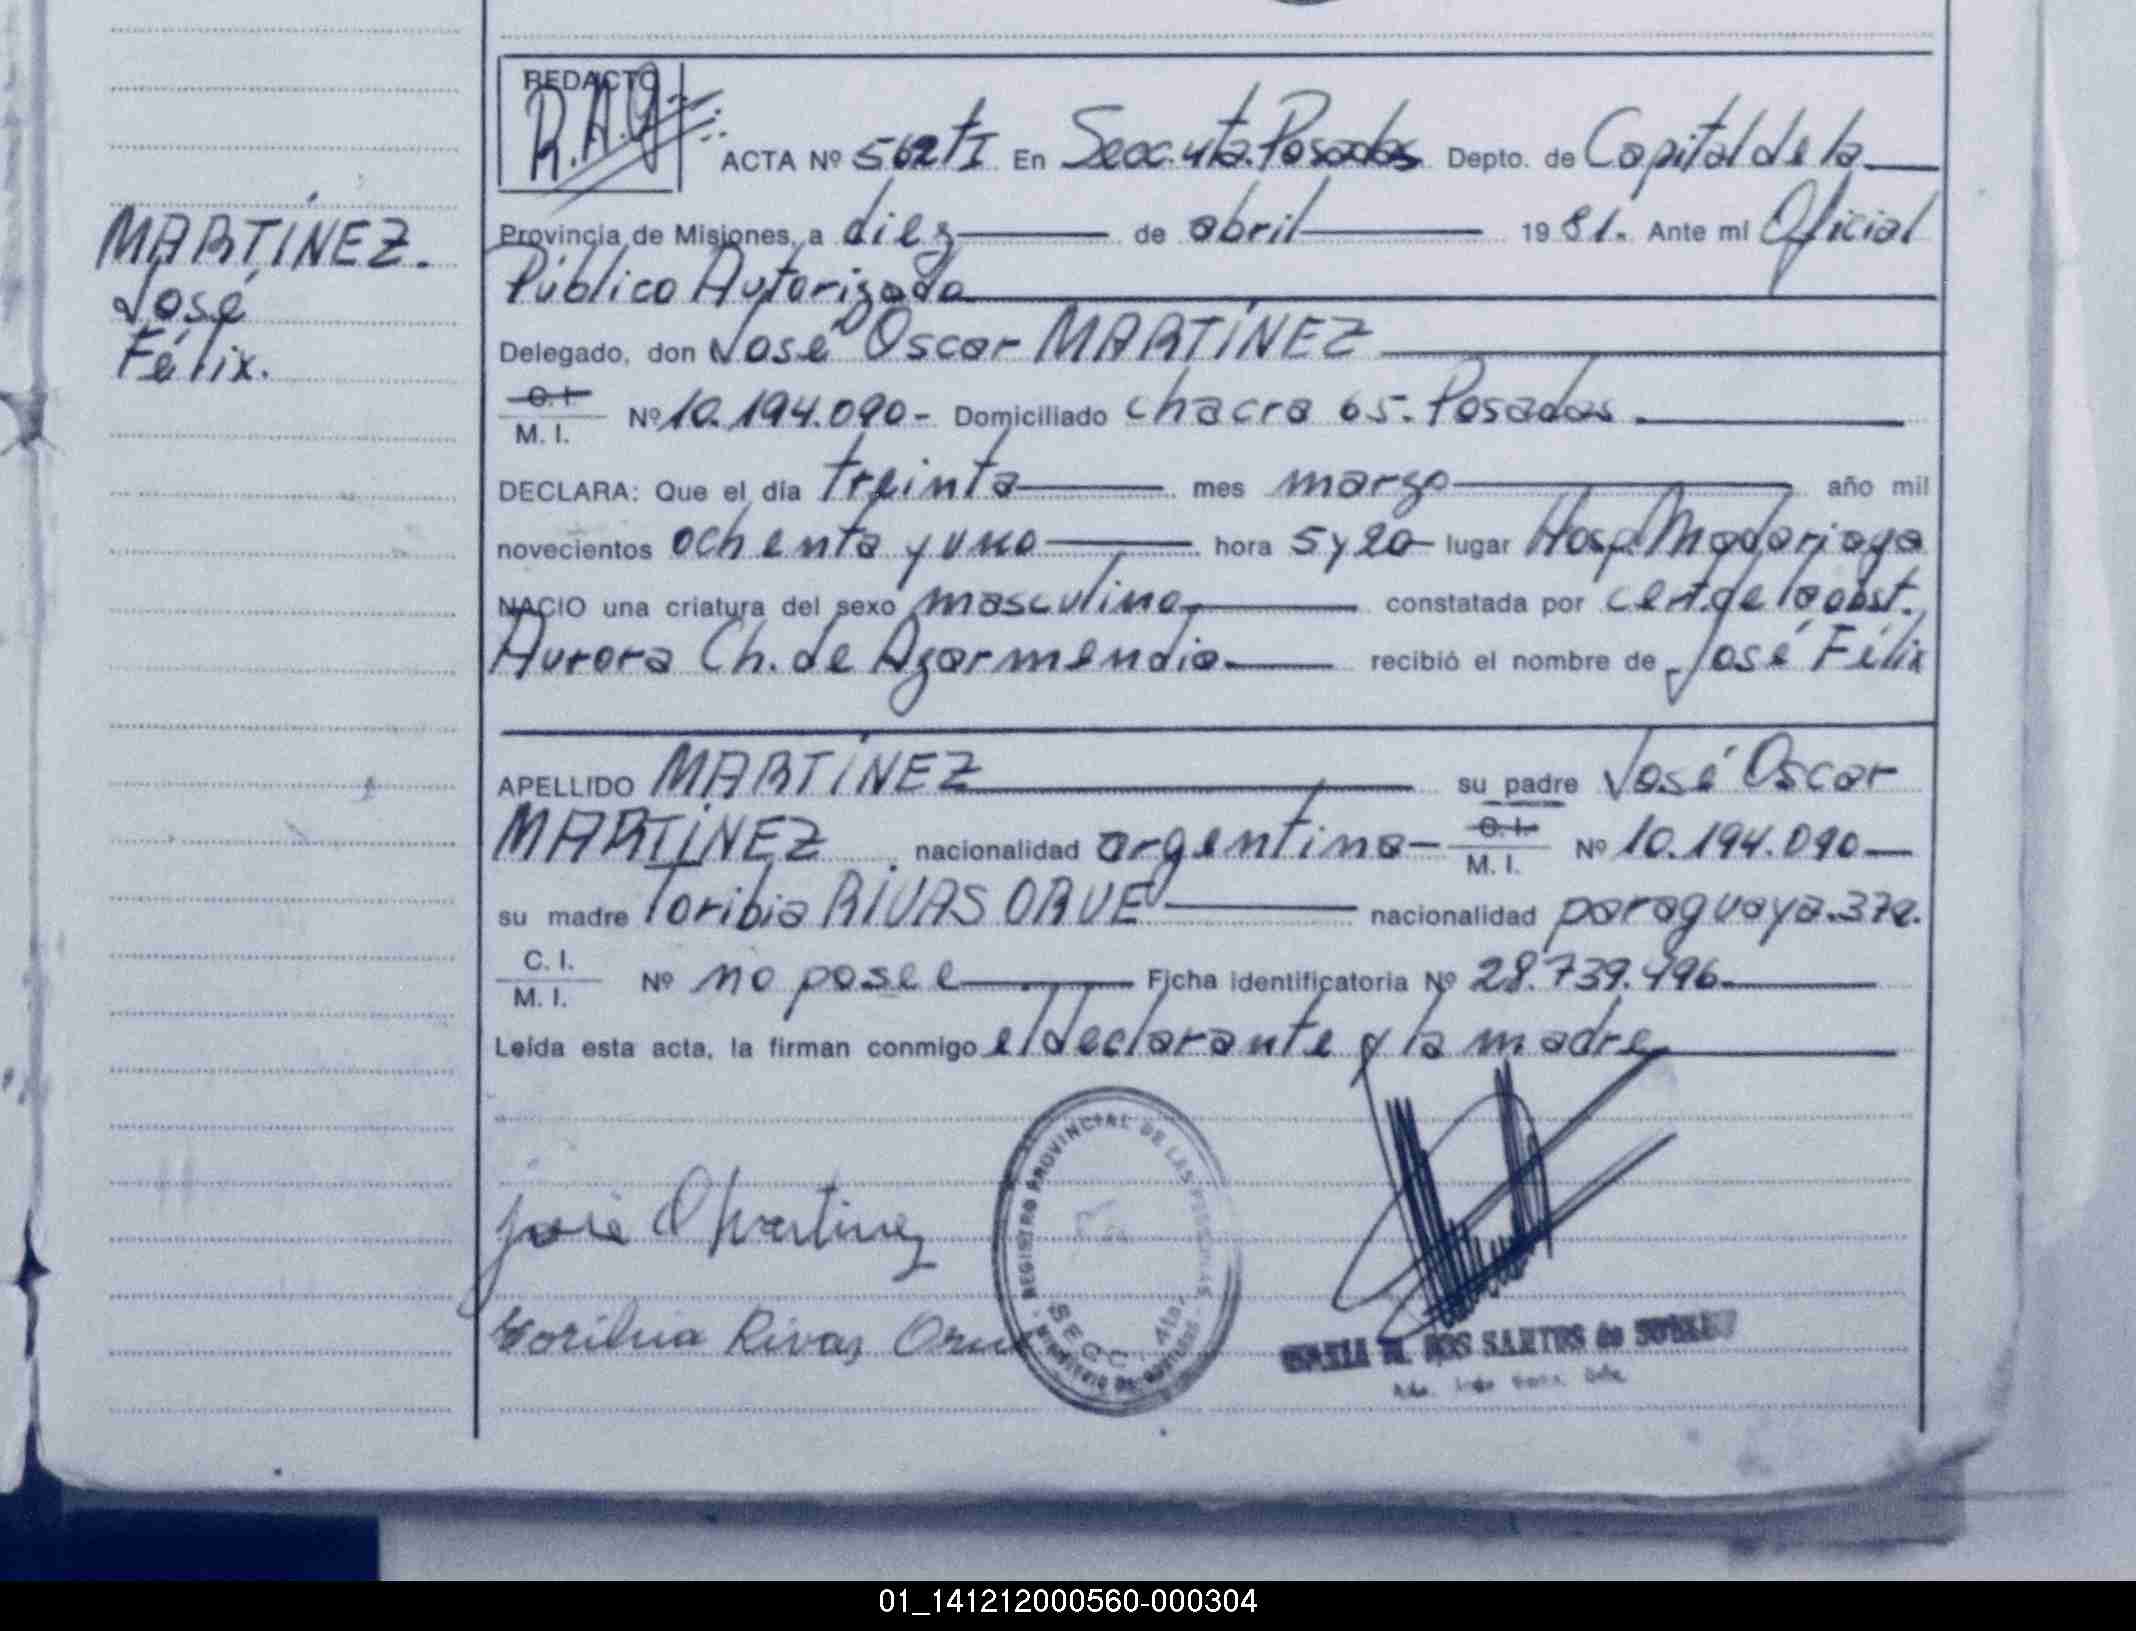 REDACTO
R.A.G
ACTA Nº 562 tI En Secc.4ta. Posadas Depto. de Capital de la
MARTÍNEZ.
José
Félix.
Provincia de Misiones, a diez de abril 1981. Ante mi Oficial
Público Autorizado
Delegado, don José Oscar MARTÍNEZ
C. I.
M. I. Nº 10.194.090- Domiciliado chacra 65. Posadas.
DECLARA: Que el día treinta mes marzo año mil
novecientos ochenta y uno hora 5 y 20 lugar Hosp. Madariaga
NACIO una criatura del sexo masculino constatada por cert. de la obst.
Aurora Ch. de Azarmendia recibió el nombre de José Félix
APELLIDO MARTÍNEZ su padre José Oscar
MARTÍNEZ nacionalidad argentina- C. I.
M. I. Nº 10.194.090-
su madre Toribia RIVAS ORUE nacionalidad paraguaya.37a.
C. I.
M. I. Nº no posee Ficha identificatoria Nº 28.739.496
Leída esta acta, la firman conmigo el declarante y la madre
José O Martinez
Toribia Rivas Orue
REGISTRO PROVINCIAL DE LAS PERSONAS
SECC. 4ta.
DOS SANTOS de
01_141212000560-000304